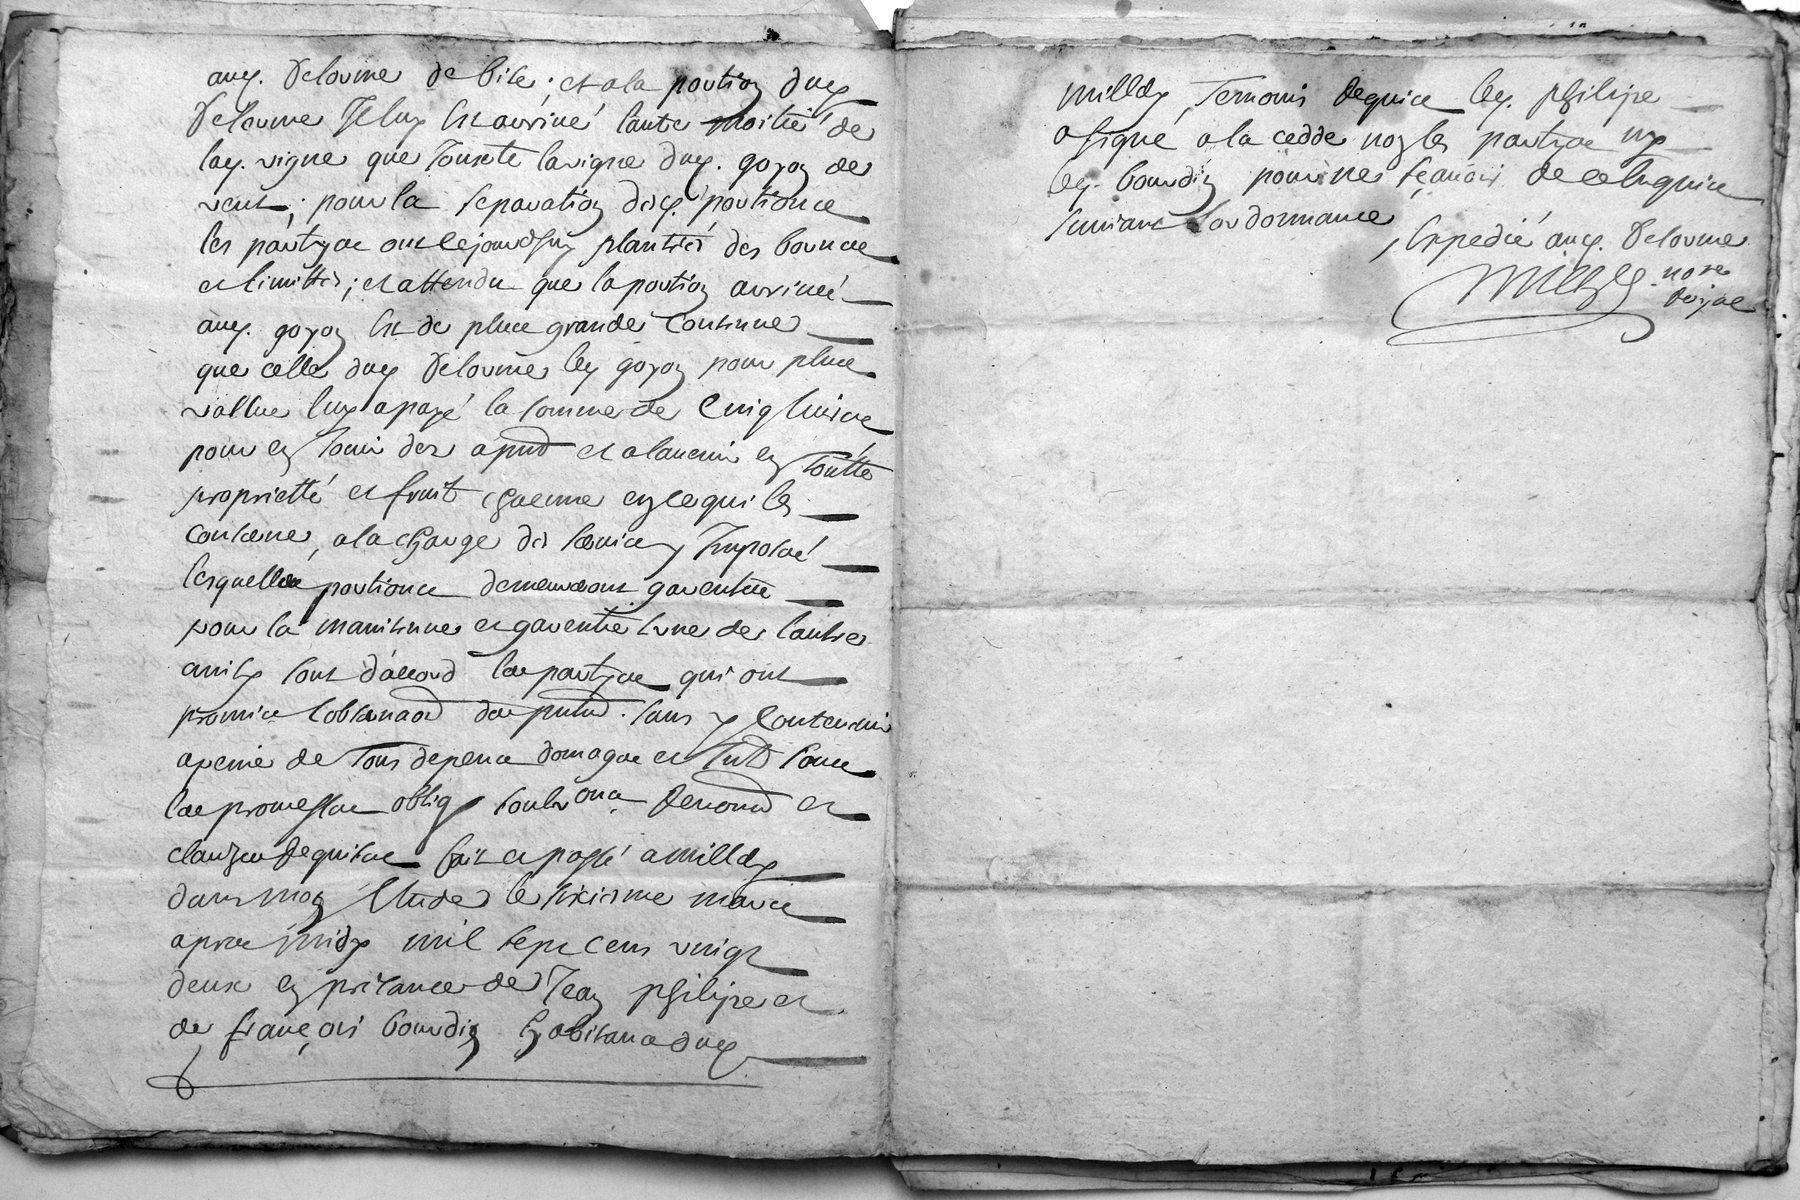 auy. Delorme de bise ; et a la portion duy
Delorme Jeluy est arrivé lautre moitié de
lay. vigne que Jouxte la vigne duy. goyon de
vent ; pour la separation desy. portions
les partyes ont cejourdhuy plantés des bornes
et limittes ; et attendu que la portion arrivée
auy. goyon est de plus grande Contenue
que celle duy Delorme ley goyon pour plus
vallue luy a payé la somme de Cinq livres
pour en Jouir des apnt et alavenir en toutte
proprietté et fruit chacune en ce qui les
concerne, a la charge des Imposés
lesquelles portions demeureront garenties
pour la maintenue et garentie lune de lautre
ainsy sont daccord les partyes qui ont
promis lobservaon des pntes. sans y Contrevenir
apeine de tous depens domages et sous
les promesses oblig soubzons. Renons et
clauzes Requises fait et passé a milly
dans mon Etude le sixieme mars
apres midy mil sept cens vingt
deux en presance de Jean philipe et
de françois bourdin habitans duy
milly Temoins Requis ley. philipe
a signé a la cedde non les partyes ny
ley. bourdin pour ne scavoir de ce Enquis
suivant Lordonnance
Expedié auy. Delorme